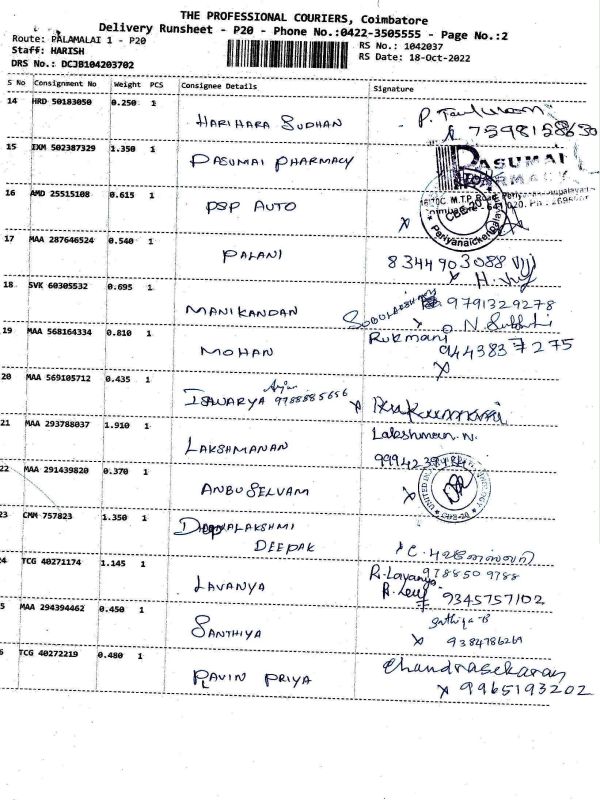 THE PROFESSIONAL COURIERS, Coimbatore
Delivery Runsheet - P20 - Phone No.:0422-3505555 - Page No.:2
Route: PALAMALAI 1 - P20 RS No.: 1042037
Staff: HARISH RS Date: 18-Oct-2022
DRS No.: DCJB104203702
S No Consignment No Weight PCS Consignee Details Signature
14 HRD 50183050 0.250 1
HARIHARA SUDHAN
15 EXM 502387329 1.350 1
PASUMAI PHARMACY PASUMAI
PHARMACY
16 AMD 25515108 0.615 1
PSP AUTO
17 MAA 287646524 0.540 1
PALANI 8344903088
18 SVK 60305532 0.695 1
MANIKANDAN 9791329278
19 MAA 568164334 0.810 1 Rukmani
MOHAN 9443837275
20 MAA 569105712 0.435 1
ISWARYA 9788885656
21 MAA 293788037 1.910 1 Lakshmanan.N.
LAKSHMANAN
22 MAA 291439820 0.370 1
ANBU SELVAM
23 CMM 757823 1.350 1
LAKSHMI
DEEPAK
24 TCG 40271174 1.145 1 R.Lavanya 9788509788
LAVANYA 9345757102
5 MAA 294394462 0.450 1 Sathiya-B
SANTHIYA 9384786269
6 TCG 40272219 0.480 1 Chandrasekaran
PRAVIN PRIYA 9965193202